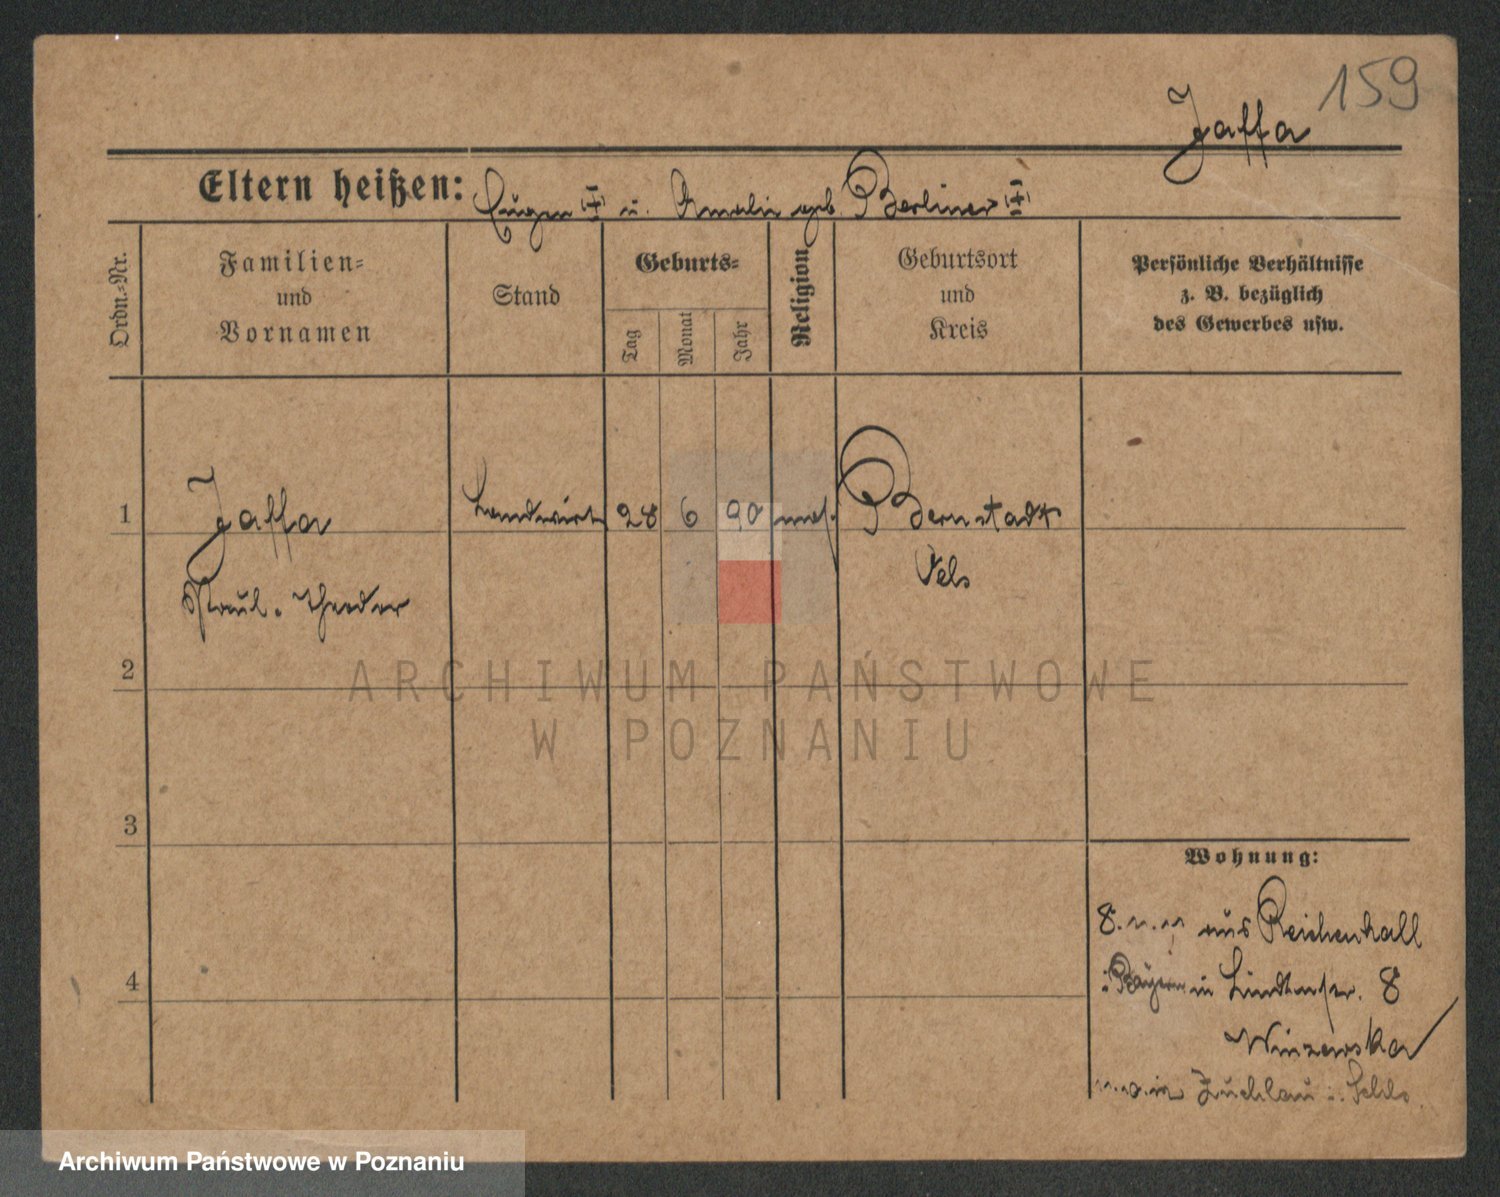 159
Jaffa
Eltern heißen: Eugen u. Amalie geb. Berliner
Ordn.-Nr.
Familien-
und
Vornamen
Stand
Geburts-
Tag
Monat
Jahr
Religion
Geburtsort
und
Kreis
Persönliche Verhältnisse
z. B. bezüglich
des Gewerbes usw.
1 Jaffa Landwirt 28 6 90 mos. Bernstadt
Oels
Paul. Theodor
2
3
4
Wohnung:
8. 11. 11 aus Reichenhall
i. Bayern in Lindenstr. 8
Winzewska
in Zuchlau i. Schles.
ARCHIWUM PAŃSTWOWE
W POZNANIU
Archiwum Państwowe w Poznaniu